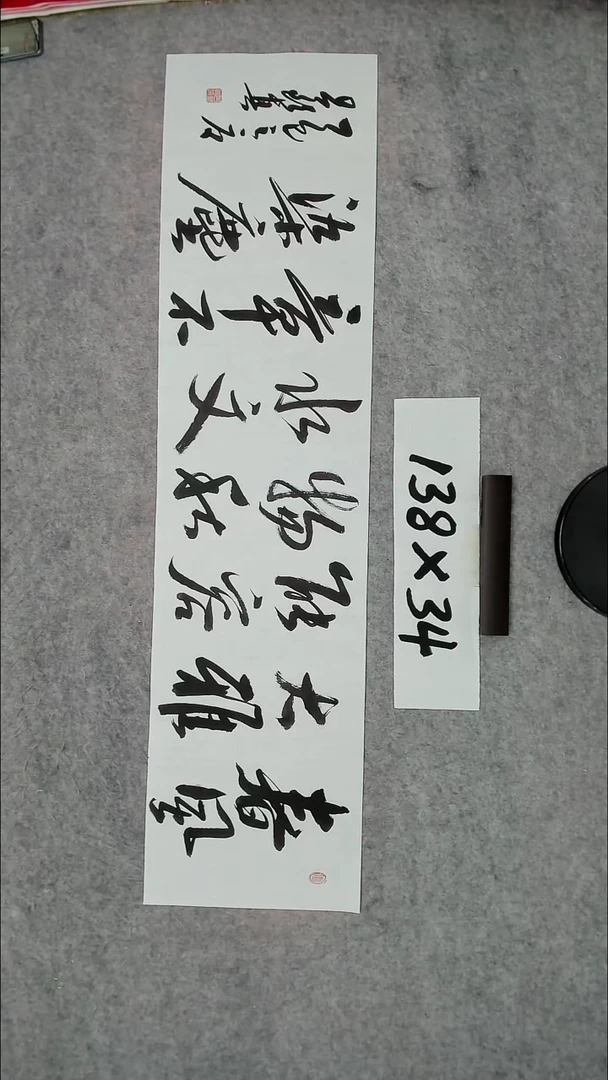 春風
大雅
能容
物秋
水文
章不
染塵
138×34